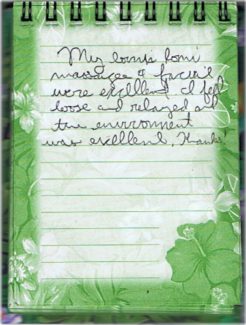 My lomi lomi
massages & facial
were excellent. I feel
loose and relaxed and
the environment
was excellent, Thanks!